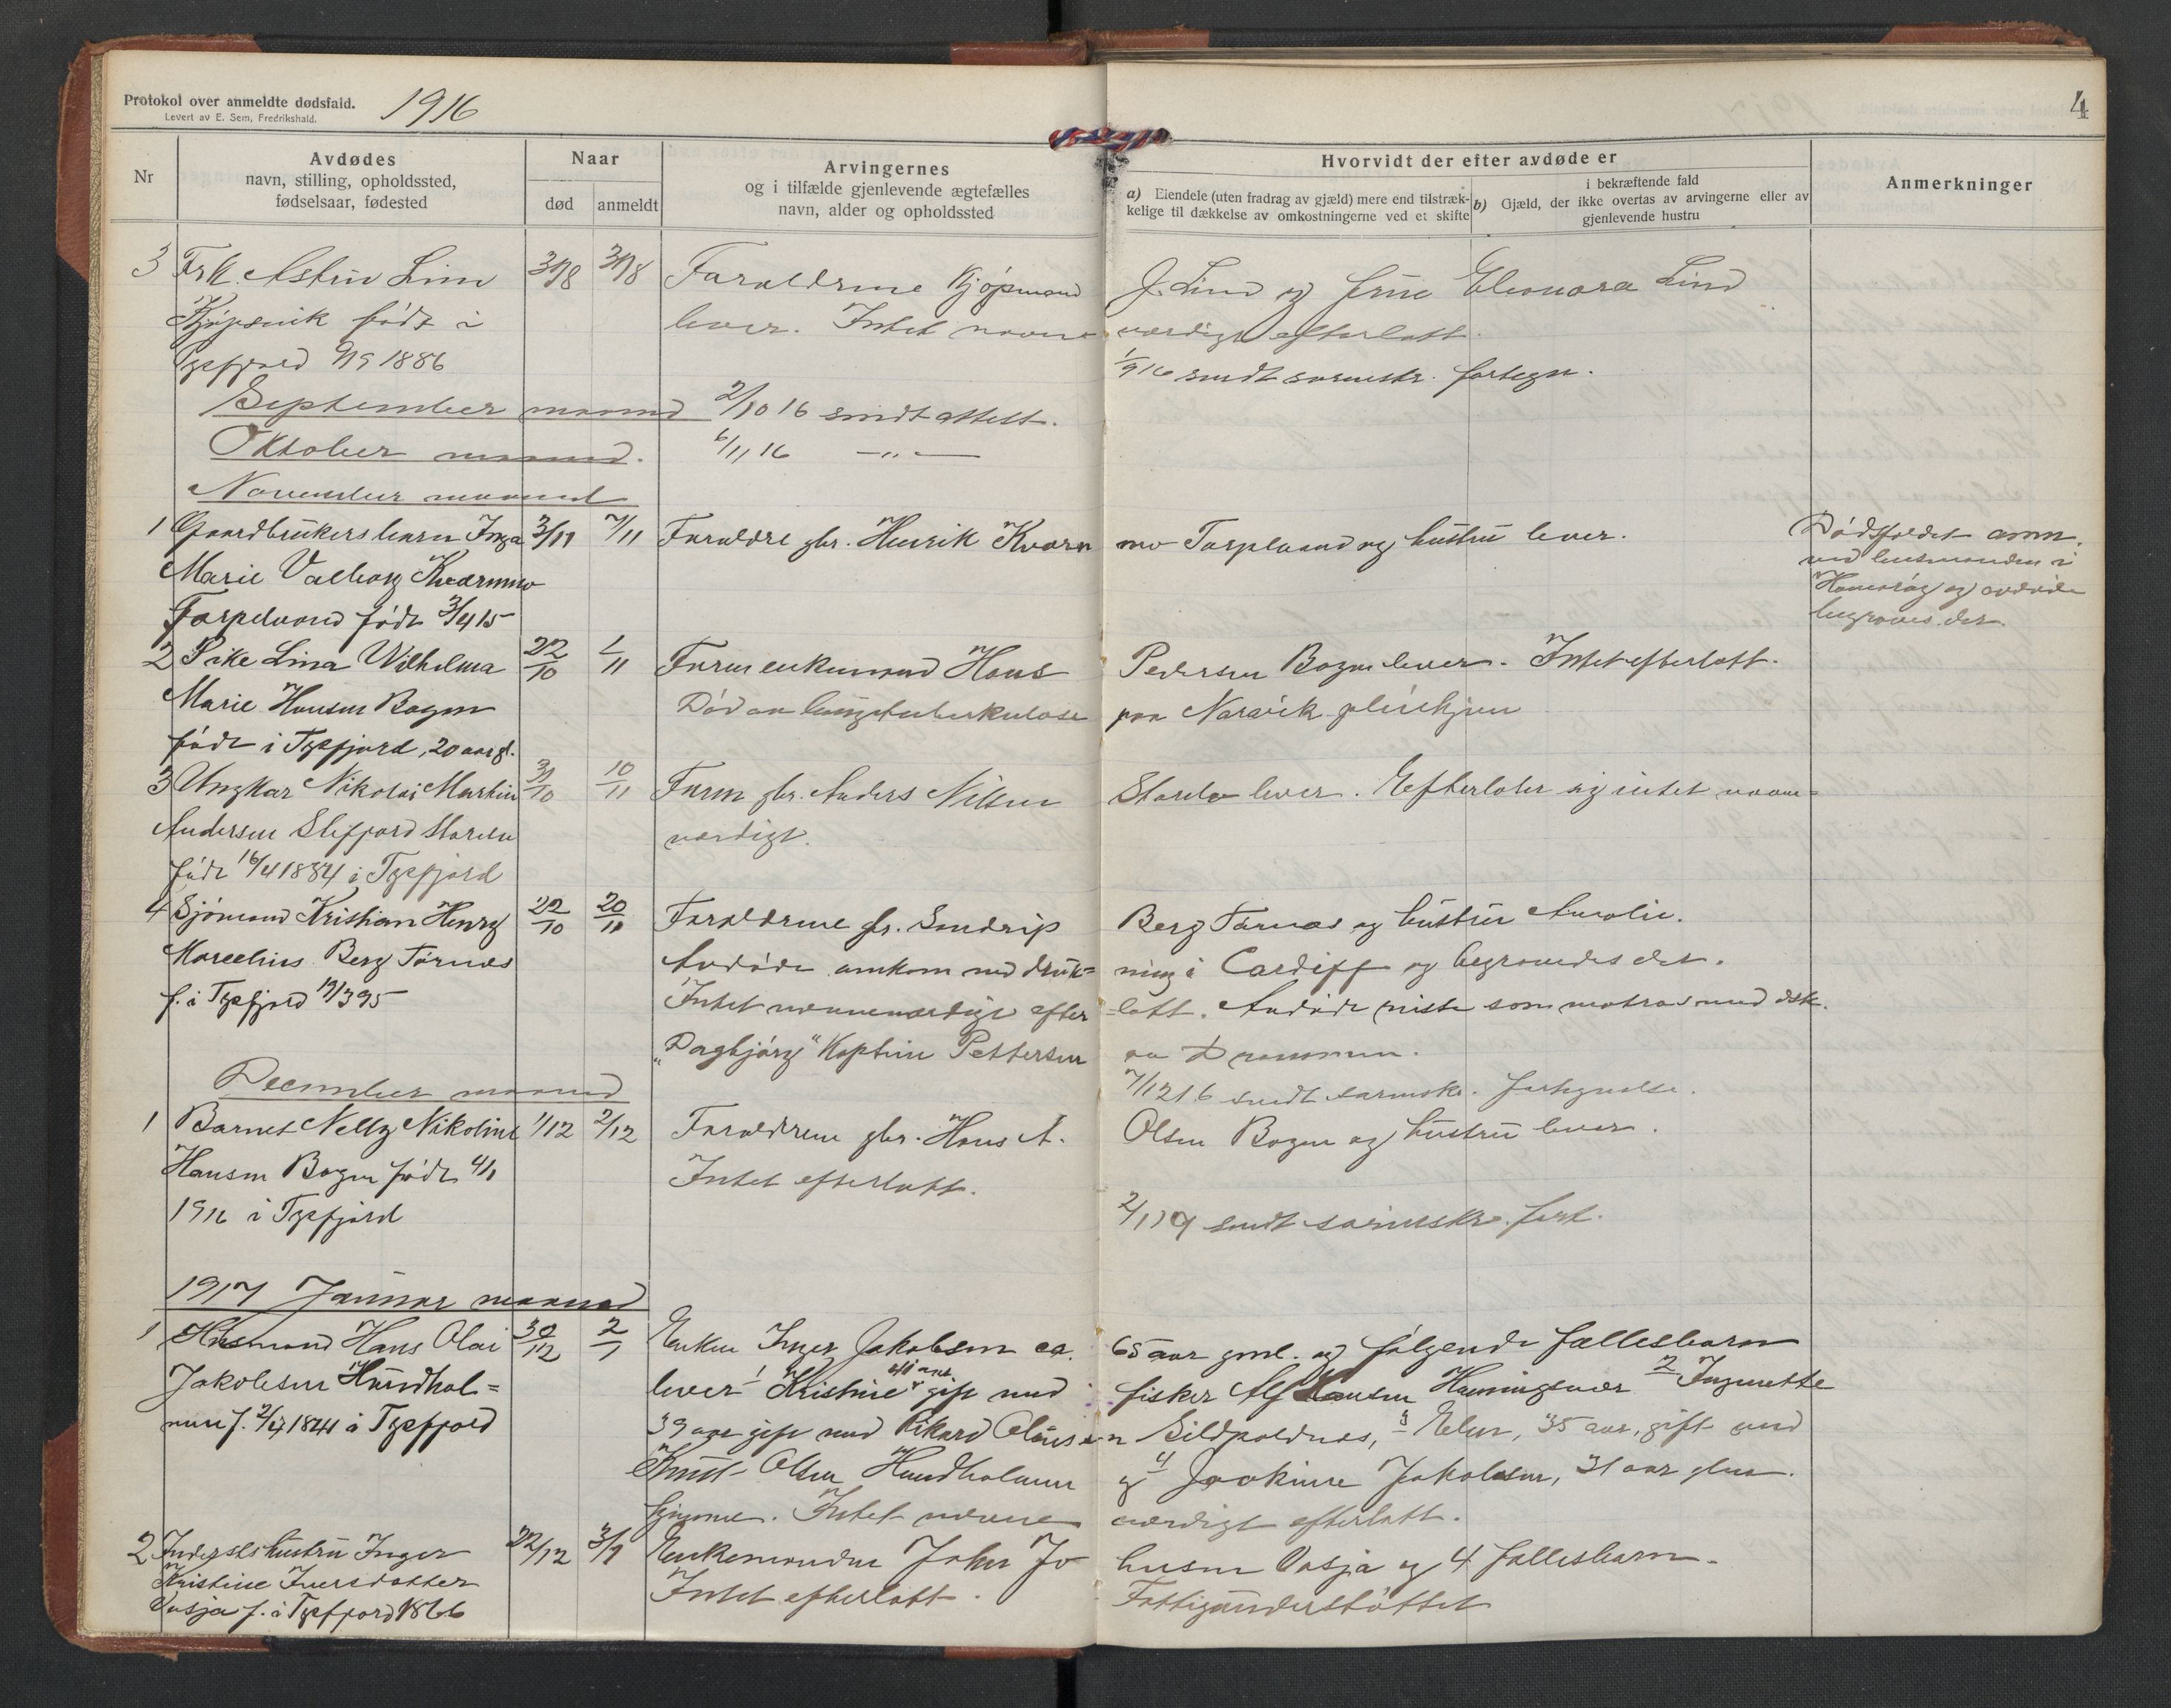 Protokol over anmeldte dødsfald.
Levert av E. Sem, Fredrikshald.
1916
4
Nr
Avdødes
navn, stilling, opholdssted,
fødselsaar, fødested
Naar
død
anmeldt
Arvingernes
og i tilfælde gjenlevende ægtefælles
navn, alder og opholdssted
Hvorvidt der efter avdøde er
a) Eiendele (uten fradrag av gjæld) mere end tilstræk-
kelige til dækkelse av omkostningerne ved et skifte
i bekræftende fald
b) Gjæld, der ikke overtas av arvingerne eller av
gjenlevende hustru
Anmerkninger
3 Frk. Astrid Lind 31/8 31/8 Forældrene Kjøpmand J. Lind og frue Eleonora Lind
Kjøpsvik født i lever. Intet nævne værdigt efterlatt.
Tysfjord 1886
1/9 16 sendt sorenskr. fortegn.
September maaned 2/10 16 sendt attest.
Oktober maaned. 6/11 16 — " —
November maaned
1 Gaardbrukersbarn Inga 3/11 7/11 Forældre gbr. Henrik Kvarn mo Tarpelvand og hustru lever.
Marie Valborg Kvarnmo
Tarpelvand født 3/4 15
Dødsfaldet anm.
ved lensmanden i
Hamarøy og avdøde
begraves der
2 Pike Lina Vilhelma 22/10 /11 Faren enkemand Hans Pedersen Bogen lever. Intet efterlatt.
Marie Hansen Bogen Død av lungetuberkulose paa Narvik pleiehjem
født i Tysfjord, 20 aar gl.
3 Ungkar Nikolai Martin 31/10 10/11 Faren gbr. Anders Nilsen Storelv lever. Efterlater sig intet nævne=
Andersen Stefjord Storelv værdigt.
født 16/4 1884 i Tysfjord
4 Sjømand Kristian Henry 22/10 20/11 Forældrene gbr. Sendrip Berg Tørnes og hustru Amalie.
Marcelius Berg Tørnes Avdøde omkom ved druk= ning i Cardiff og begravedes der.
f. i Tysfjord 19/3 95 Intet nævneværdigt efter =latt. Avdøde reiste som matros med dsk.
"Dagbjørg" Kaptein Pettersen av Drammen.
7/12 16 sendt sorenskr. fortegnelse.
December maaned
1 Barnet Nelly Nikoline 1/12 2/12 Forældrene gbr. Hans A. Olsen Bogen og hustru lever.
Hansen Bogen født 4/1 Intet efterlatt.
1916 i Tysfjord
2/1 19 sendt sorenskr. fort.
1917 Januar maaned
1 Husmand Hans Olai 30/12 2/1 Enken Inger Jakobsen ca. 65 aar gml. og følgende fællesbarn
Jakobsen Hundhol= lever 1 Kristine 41 aar gift med fisker Alf Hansen Henningsvær 2 Ingnette
men f. 2/4 1841 i Tysfjord 39 aar gift med Rikard Olaus en Sildpoldnes, 3 Elen, 35 aar, gift med
Knut Olsen Hundholmen og 4 Joakime Jakobsen, 31 aar
hjemme. Intet nævne værdigt efterlatt.
2 Inderstshustru Inger 22/12 3/1 Enkemanden Johan Jo hansen Vasja og 4 fællesbarn.
Kristine Iversdatter Intet efterlatt. Fattigunderstøttet
Vasja f. i Tysfjord 1866